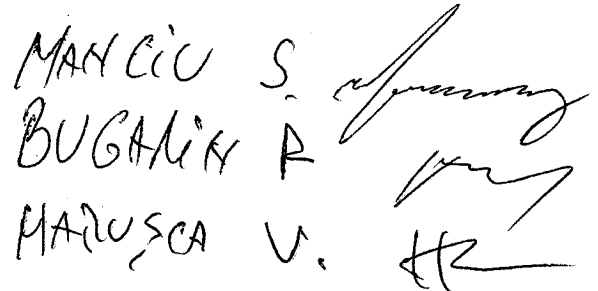 MANCIU S.
BUGARIN R
MARUȘCA V.